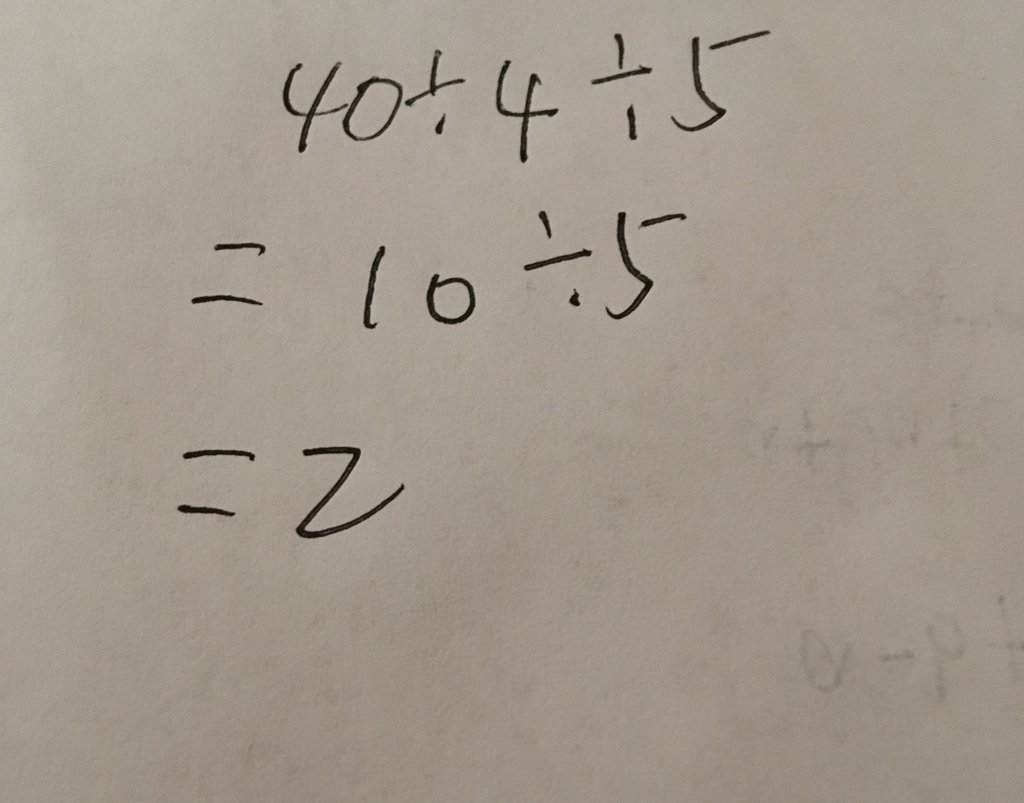 40÷4÷5
=10÷5
=2